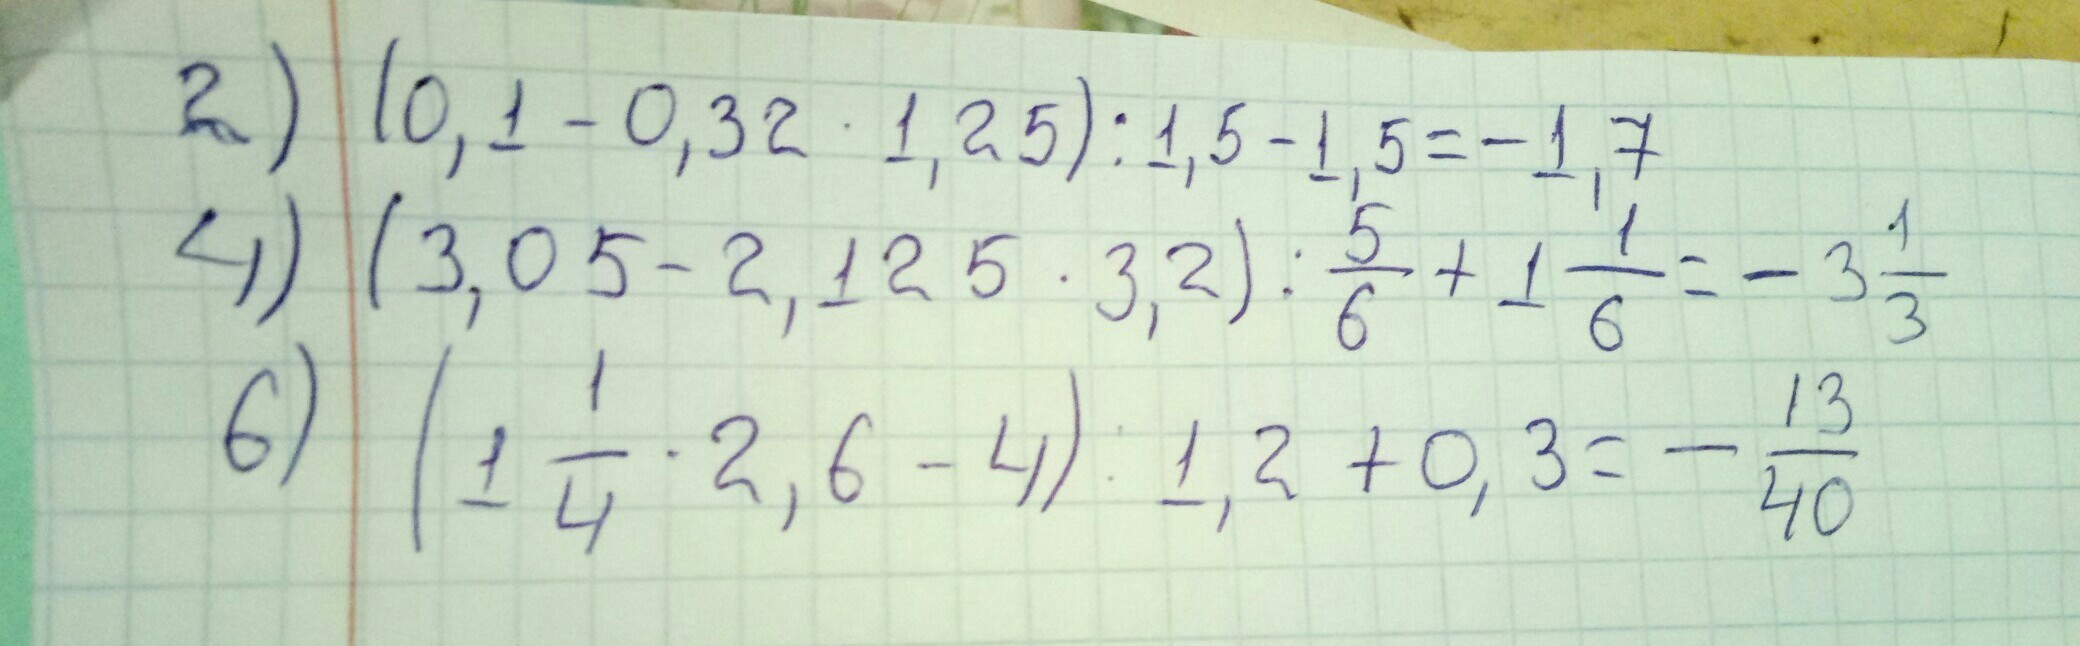 2) (0,1 - 0,32 · 1,25) : 1,5 - 1,5 = -1,7
4) (3,05 - 2,125 · 3,2) : 5/6 + 1 1/6 = -3 1/3
6) (1 1/4 · 2,6 - 4) : 1,2 + 0,3 = - 13/40